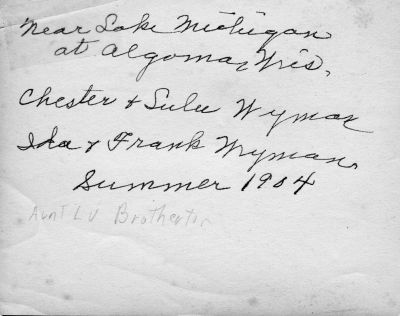 Near Lake Michigan
at Algoma, Wis.
Chester & Lulu Wyman
Ida & Frank Wyman.
Summer 1904
Aunt LU Brotherton